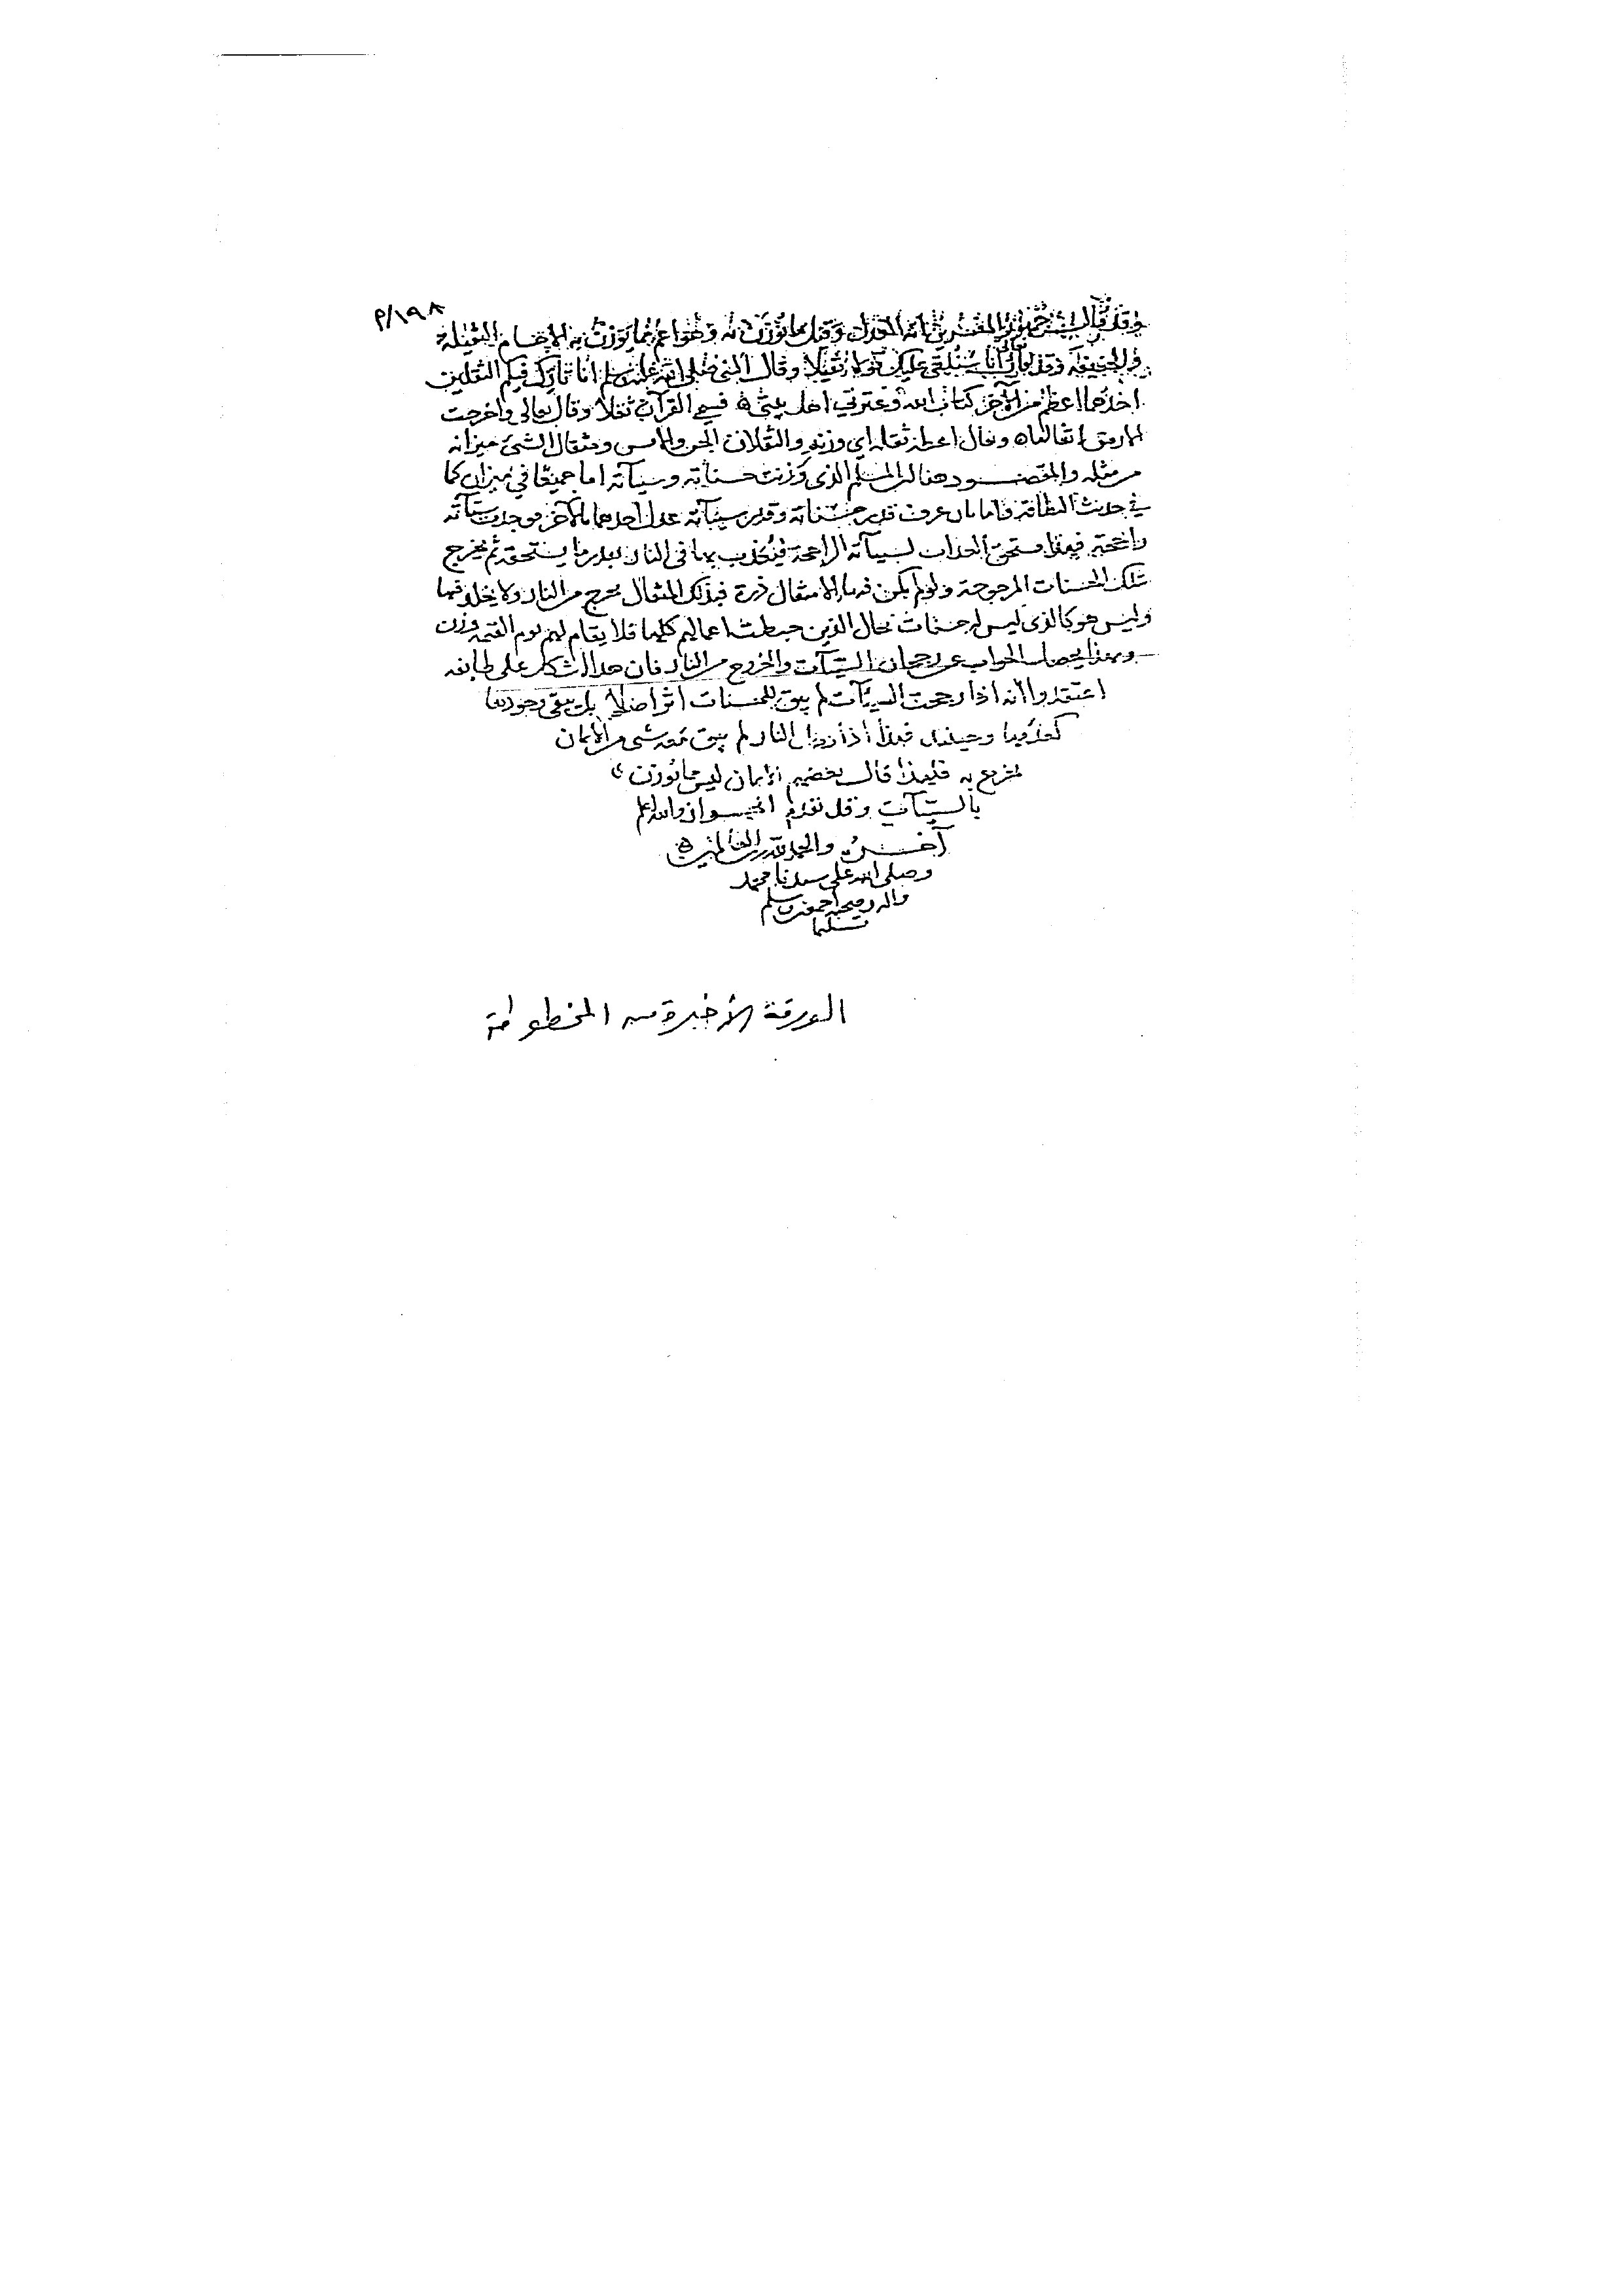 ١٩٨/م
وقد قال جمهور المفسرين انه العدل وقيل ما يوزن به وهو اعم مما يوزن به الاجسام الثقيلة
والخفيفة وقد قال تعالى انا سنلقي عليك قولا ثقيلا وقال النبي صلى الله عليه وسلم انا تارك فيكم الثقلين
احدهما اعظم من الآخر كتاب الله وعترتي اهل بيتي فسمى القرآن ثقلا وقال تعالى واخرجت
الارض اثقالها ويقال اعطه ثقله اي وزنه والثقلان الجن والانس ومثقال الشيء ميزانه
من مثله والمقصود هنا ان المسلم الذي وزنت حسناته وسيآته اما جميعا في ميزان كما
في حديث البطاقة واما بان عرف قدر حسناته وقدر سيآته عدل احدهما بالآخر فوجدت سيآته
راجحة فهذا مستحق العذاب لسيآته الراجحة فيعذب بها في النار بقدر ما يستحقه ثم يخرج
بتلك الحسنات المرجوحة ولو لم يكن فيها الا مثقال ذرة فبذلك المثقال يخرج من النار ولا يخلد فيها
وليس هو كالذي ليس له حسنات بحال الذين حبطت اعمالهم كلها فلا يقام لهم يوم القيمة وزن
وبهذا يحصل الجواب عن رجحان السيآت والخروج من النار فان هذا اشكل على طايفة
اعتقدوا انه اذا رجحت السيآت لم يبق للحسنات اثر اصلا بل يبقى وجودها
كعدمها وحينئذ فهذا اذا دخل النار لم يبق معه شي من الايمان
يخرج به فلهذا قال بعضهم الايمان ليس مما يوزن
بالسيآت وقد تقدم الجواب والله اعلم
آخره والحمد لله رب العالمين
وصلى الله على سيدنا محمد
واله وصحبه اجمعين وسلم
تسليما
الورقة الأخيرة من المخطوطة